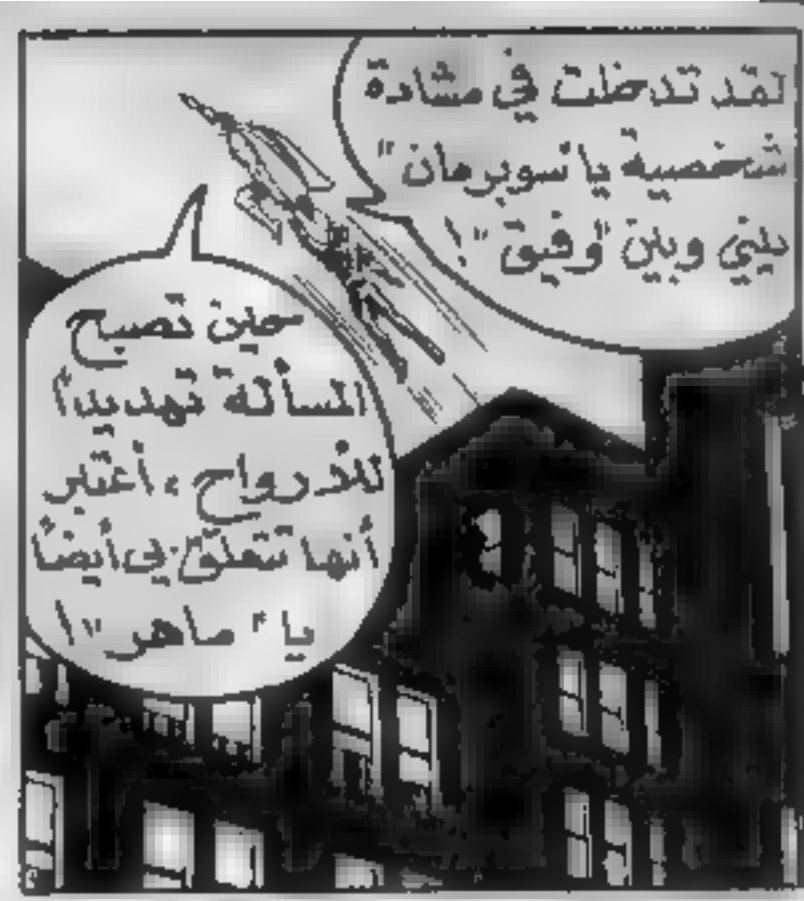 لقد تدخلت في مشادة
شخصية يا "سوبرمان"
بيني وبين "وفيق"!
حين تصبح
المسألة تهديداً
للأرواح، أعتبر
أنها تتعلق بي أيضاً
يا "ماهر"!